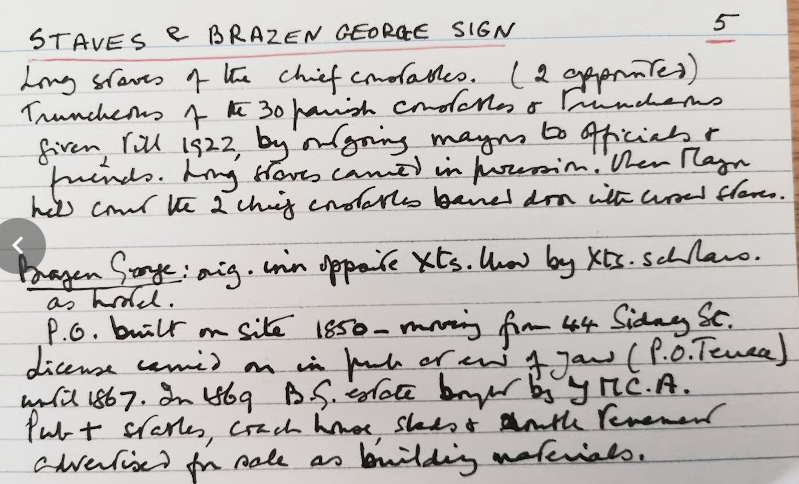 STAVES & BRAZEN GEORGE SIGN 5
Long staves of the chief constables. (2 appointed)
Truncheons of the 30 parish constables & Truncheons
given, till 1922, by outgoing mayors to officials &
friends. Long staves carried in procession. When Mayor
held court the 2 chief constables barred door with crossed staves.
Brazen George: orig. inn opposite Xts. Used by Xts. scholars.
as hostel.
P.O. built on site 1850 - moving from 44 Sidney St.
License carried on in pub at end of yard (P.O. Terrace)
until 1867. In 1869 B.G. estate bought by YMC.A.
Pub + stables, coach house, sheds & tenement
advertised for sale as building materials.